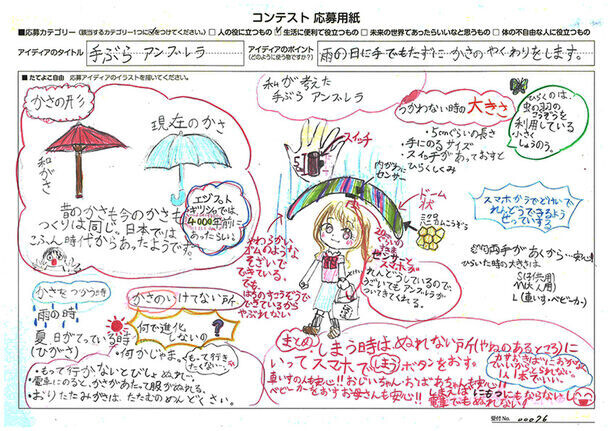 コンテスト 応募用紙
■応募カテゴリー (該当するカテゴリー1つに✓をつけてください。) □人の役に立つもの ☑生活に便利で役立つもの □未来の世界であったらいいなと思うもの □体の不自由な人に役立つもの
アイディアのタイトル
手ぶら アンブレラ
アイディアのポイント
(どのように使う物ですか?)
雨の日に手でもたずに かさのやくわりをします。
■たてよこ自由 応募アイディアのイラストを描いてください。
かさの形
現在のかさ
和がさ
昔のかさも今のかさも
つくりは同じ。日本では
こふん時代からあったようです。
エジプト
ギリシャでは、
4000年前に
あったらしい
私が考えた
手ぶら アンブレラ
スイッチ
内がわに
センサー
ドーム
状
つかわない時の大きさ
・5cmぐらいの長さ
・手にのるサイズ
・スイッチがあっておすと
ひらくしくみ
ひらくのは、
虫の羽の
こうぞうを
利用している
小さく
しゅうのう。
スマホからでもどうさ
れんどうできるよう
両手があくから
ひらいた時の大きさは
S(子供用)
M(大人用)
L(車いす・ベビーカー)
やわらかい
ゴムのような
そざいで
できている。
でも、
はねのすこうぞうで
できているから
やぶれない
センサーと
スマホが
れんどうしているので、
うごいてもアンブレラが
ついてきてくれる。
かさをつかう時
雨の時
夏 日がてっている時
(ひがさ)
かさのいけてない所
何で進化
しないの?
・何かじゃま。
・もって行き
たくない…
・もって行かないとびしょぬれで、
・電車にのると、かさがあたって服がぬれる。
・おりたたみがさは、たたむのめんどくさい。
まとめ
しまう時はぬれない所(やねのあるところ)に
いってスマホでしまうボタンをおす。
車いすの人も安心!! おじいちゃん・おばあちゃんも安心!!
ベビーカーをおすお母さんも安心!!
しまえばにもつにもならないし
電車でもぬれない
1人1本でいい。
受付No.
00076